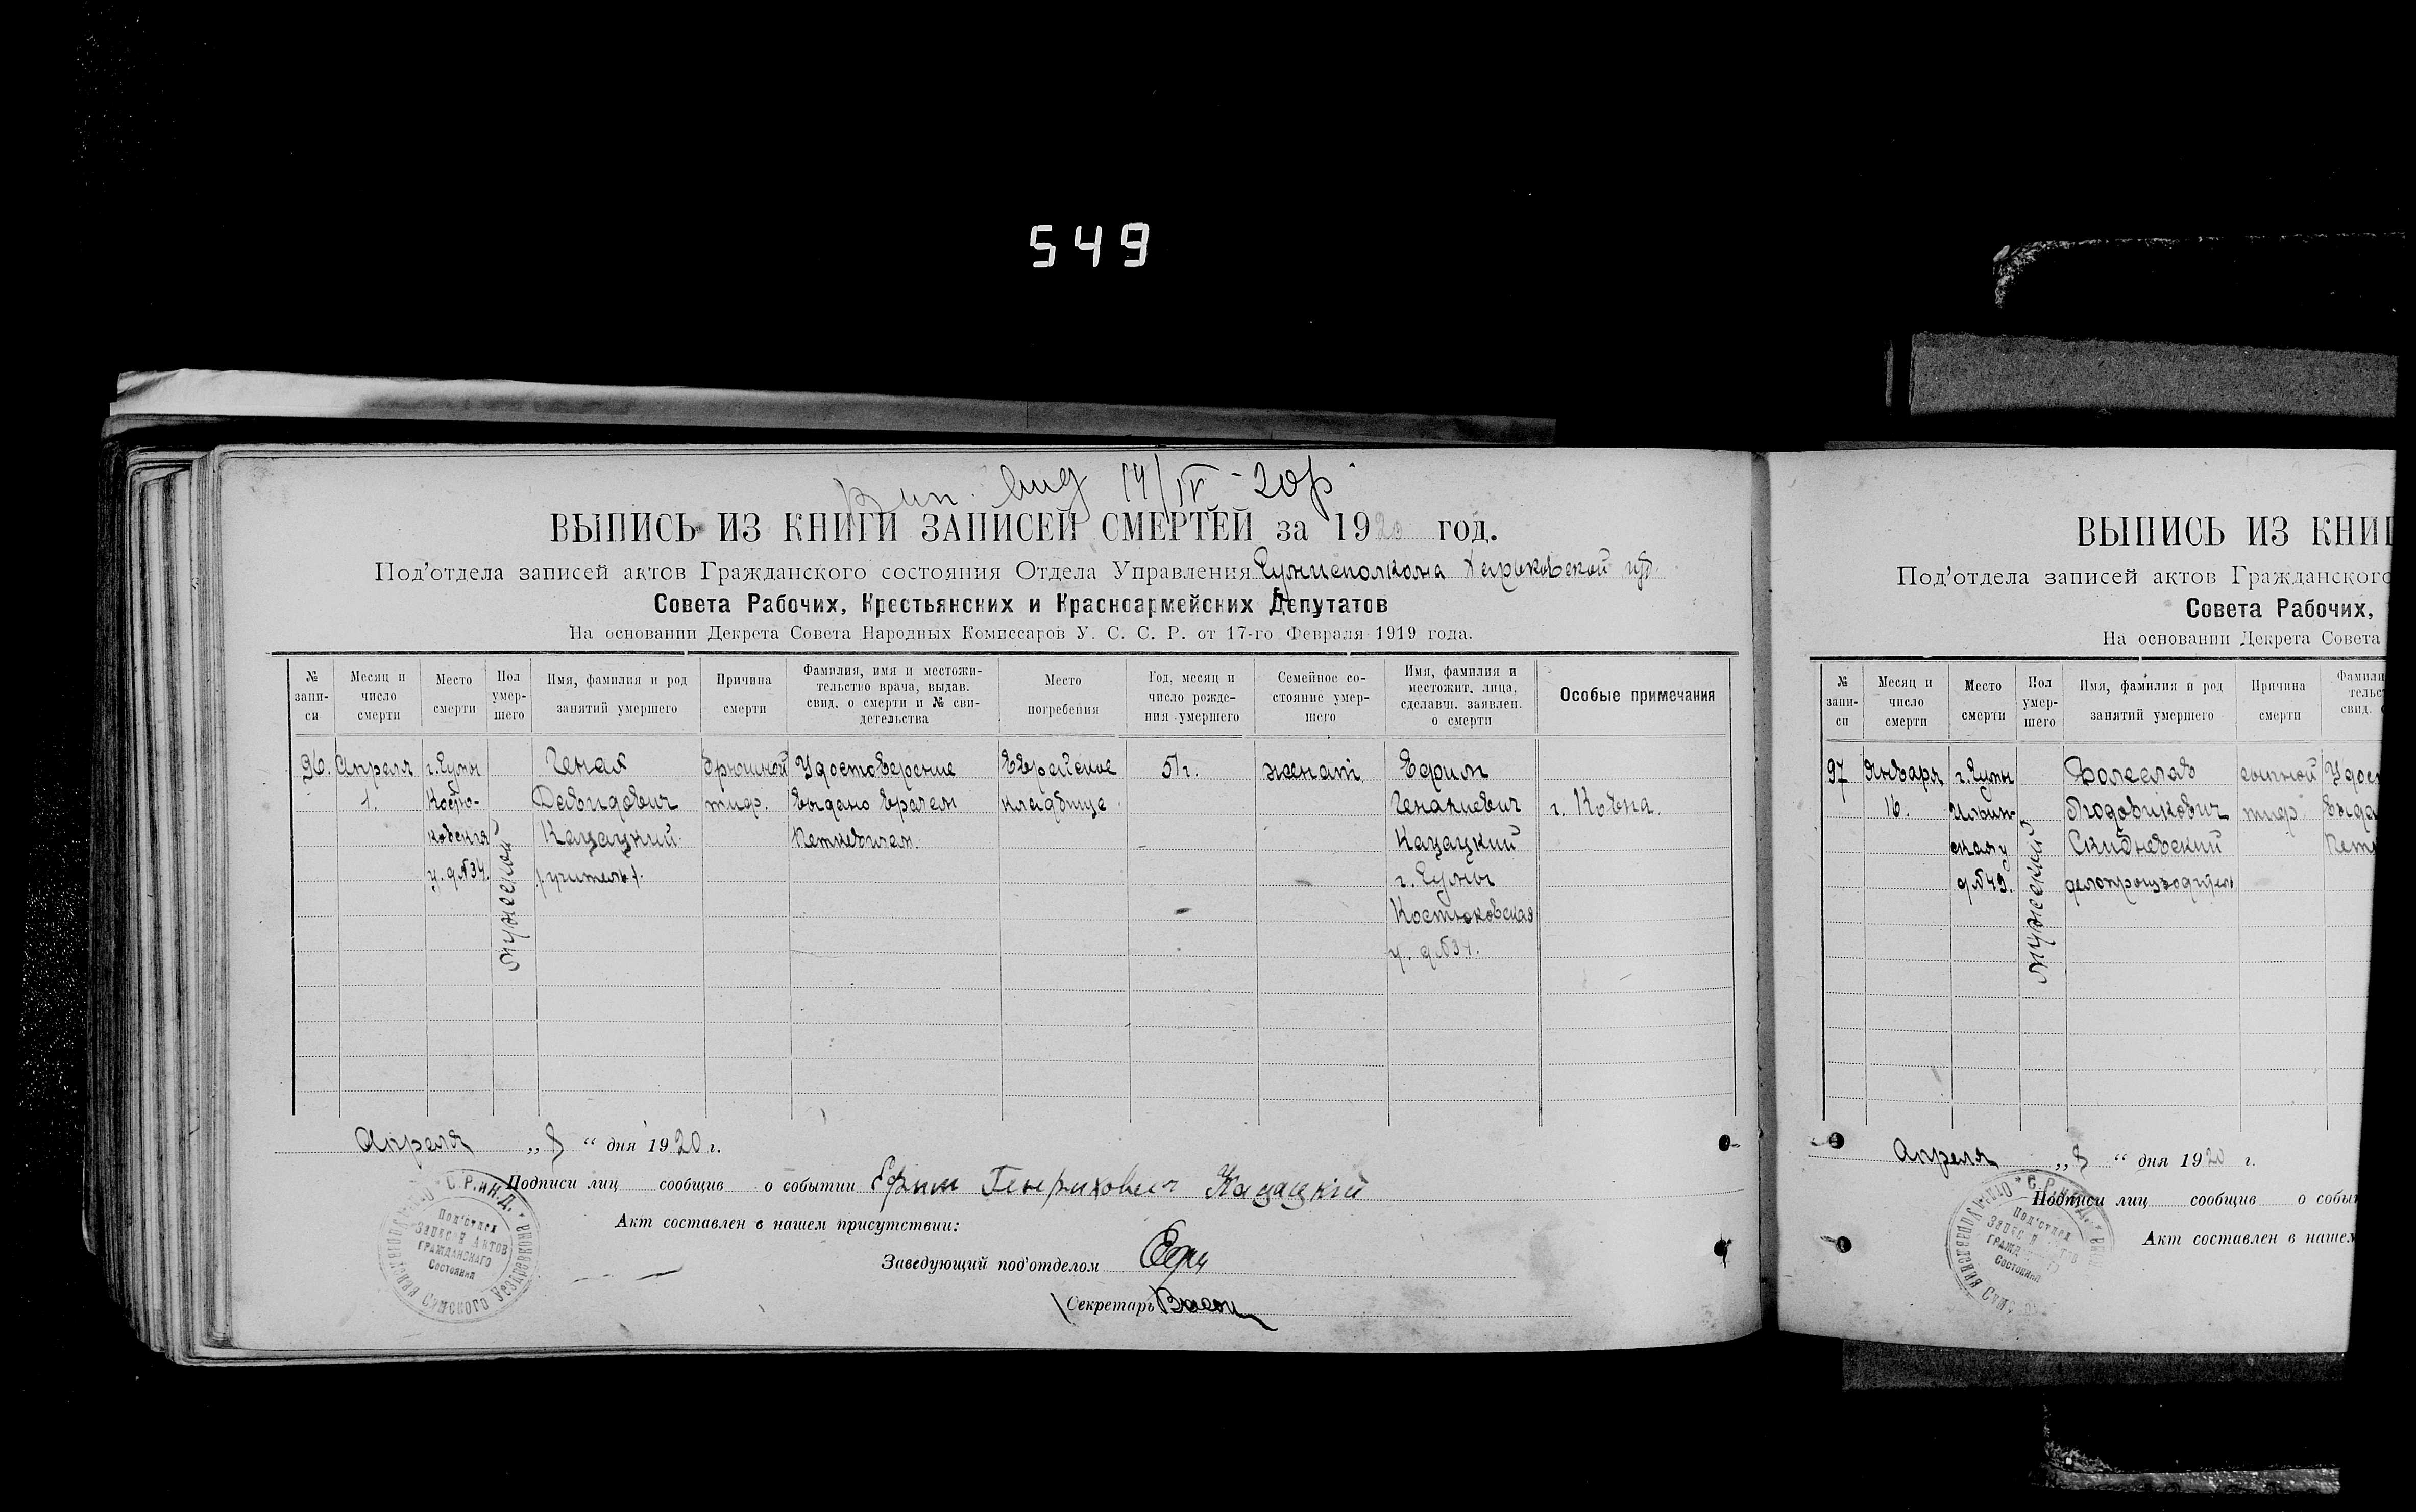 549
Вып. выд 14/IV - 20 р
ВЫПИСЬ ИЗ КНИГИ ЗАПИСЕЙ СМЕРТЕЙ за 1920 год.
Под'отдела записей актов Гражданского состояния Отдела Управления Сумисполкома Харьковской губ.
Совета Рабочих, Крестьянских и Красноармейских Депутатов
На основании Декрета Совета Народных Комиссаров У. С. С. Р. от 17-го Февраля 1919 года.
№ запи-си
Месяц и число смерти
Место смерти
Пол умер-шего
Имя, фамилия и род занятий умершего
Причина смерти
Фамилия, имя и местожи-тельство врача, выдав. свид. о смерти и № сви-детельства
Место погребения
Год, месяц и число рожде-ния умершего
Семейное со-стояние умер-шего
Имя, фамилия и местожит. лица, сделавш. заявлен. о смерти
Особые примечания
96. Апреля г. Сумы Генах брюшной Удостоверение Еврейское 51 г. женат Ефим
1. Костю- Давидович тиф. выдано врачем кладбище. Генахиевич г. Ковна.
ковская Кацацкий Петкевичем. Кацацкий
у. д №34. (учитель). г. Сумы
мужской
Костюковская
у. д №34.
Апреля „8“ дня 1920 г.
Подписи лиц сообщив о событии Ефим Генрихович Кацацкій
Акт составлен в нашем присутствии:
Заведующий под'отделом
Секретарь
С.Р.и К.Д.
Под'отдел
Записей Актов
Гражданского
Состояния
Сумского Уездревкома
ВЫПИСЬ ИЗ КНИГ
Под'отдела записей актов Гражданского
Совета Рабочих,
На основании Декрета Совета
№ запи-си
Месяц и число смерти
Место смерти
Пол умер-шего
Имя, фамилия и род занятий умершего
Причина смерти
Фамили
тельс
свид.
97 Января г. Сумы Болеслав сыпной Удос
16. Ильин- Людовикович тиф. выда
ская у Петк
д №49. делопроизводитель
мужский
Апреля „8“ дня 1920 г.
Подписи лиц сообщив о собы
Акт составлен в нашем
Под'отдел
Состояния